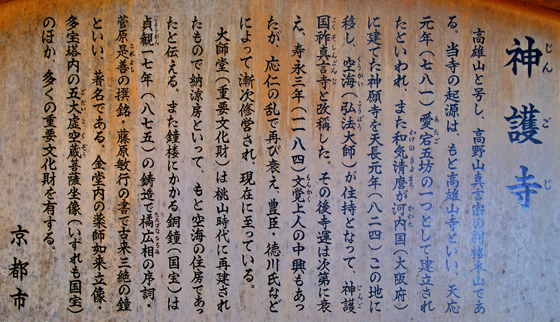 神護寺
高雄山と号し、高野山真言宗の別格本山であ
る。当寺の起源は、もと高雄山寺といい、天応
元年(七八一)愛宕五坊の一つとして建立され
たといわれ、また和気清麿が河内国(大阪府)
に建てた神願寺を天長元年(八二四)この地に
移し、空海(弘法大師)が住持となって、神護
国祚真言寺と改称した。その後寺運は次第に衰
え、寿永三年(一一八四)文覚上人の中興もあっ
たが、応仁の乱で再び衰え、豊臣、徳川氏など
によって漸次修営され、現在に至っている。
大師堂(重要文化財)は桃山時代に再建され
たもので納涼房といって、もと空海の住房であっ
たと伝える。また鐘楼にかかる銅鐘(国宝)は
貞観一七年(八七五)の鋳造で橘広相の序詞・
菅原是善の撰銘・藤原敏行の書で古来三絶の鐘
といい、著名である。金堂内の薬師如来立像・
多宝塔内の五大虚空蔵菩薩坐像(いずれも国宝)
のほか、多くの重要文化財を有する。
京都市